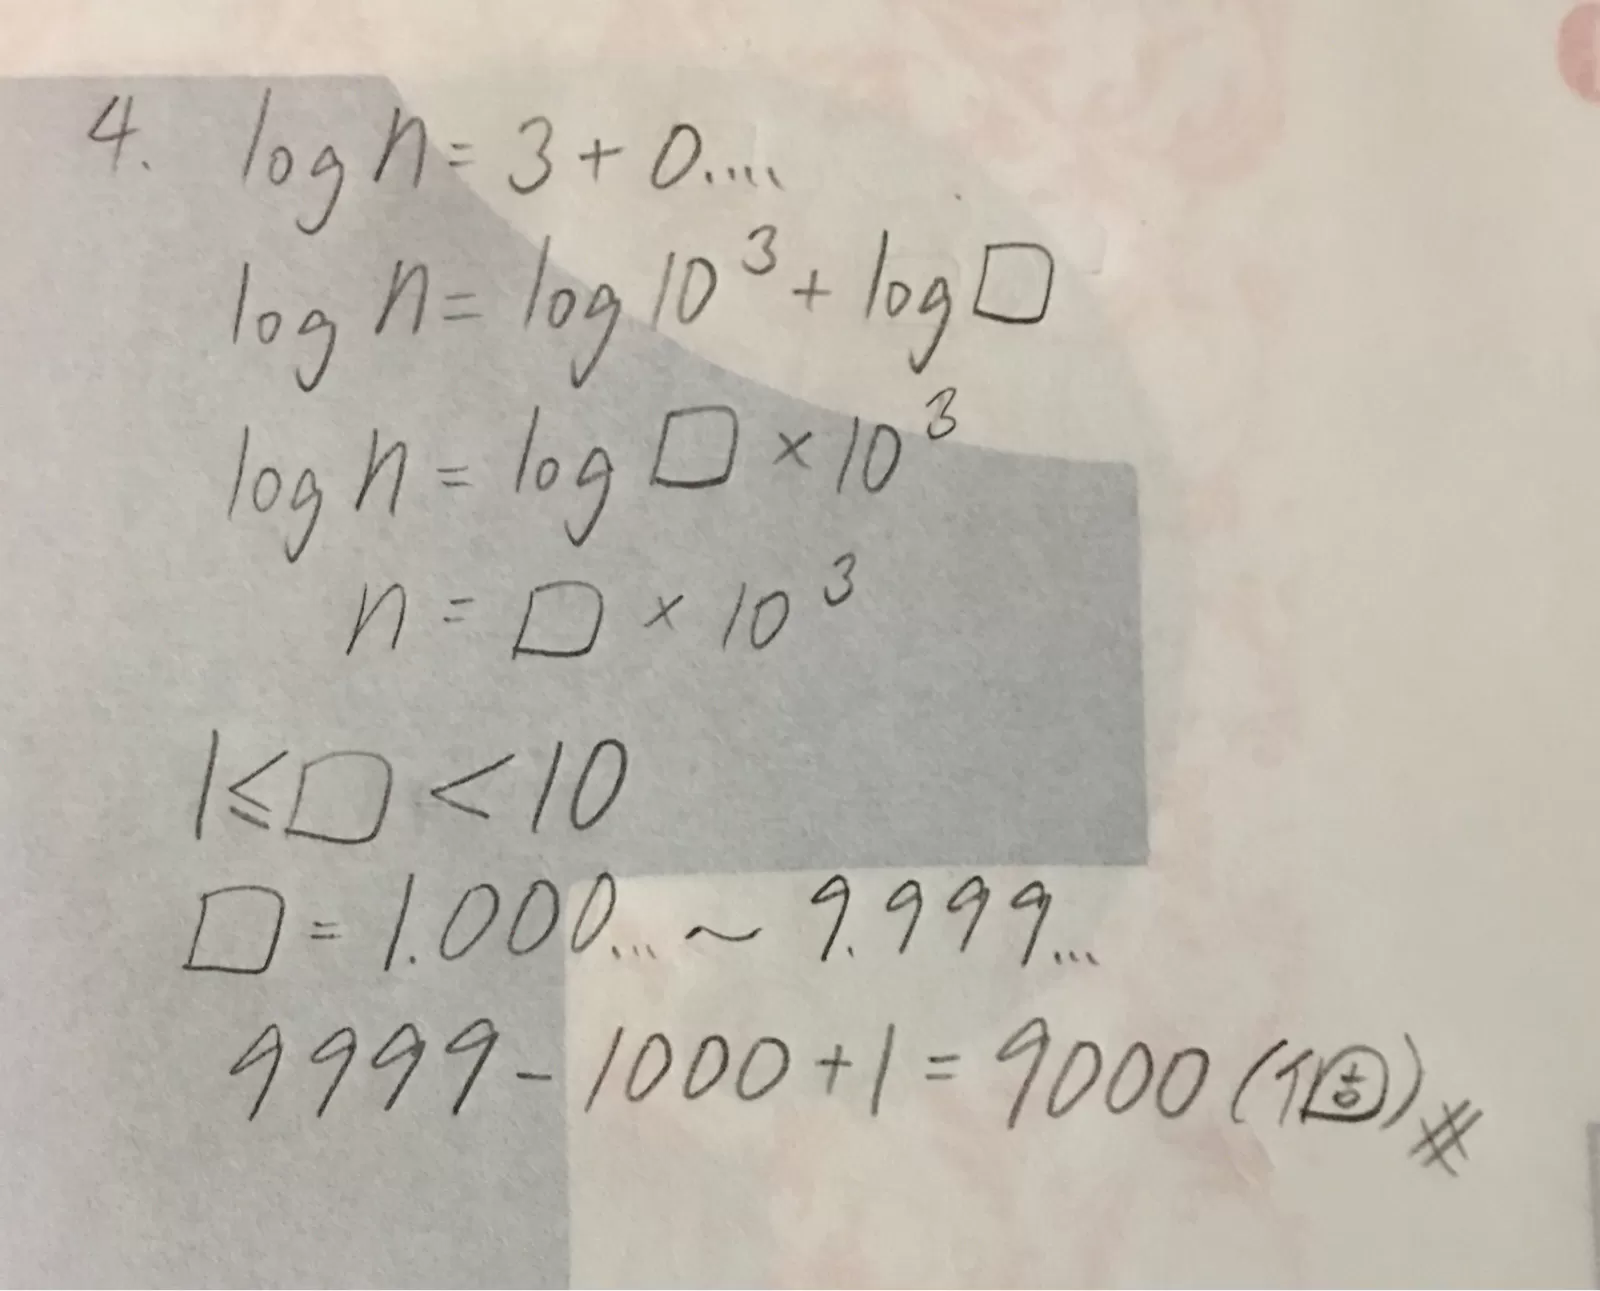 4. log n = 3 + 0....
log n = log 10³ + log □
log n = log □ × 10³
n = □ × 10³
1 ≤ □ < 10
□ = 1.000... ~ 9.999...
9999 - 1000 + 1 = 9000 (個)#